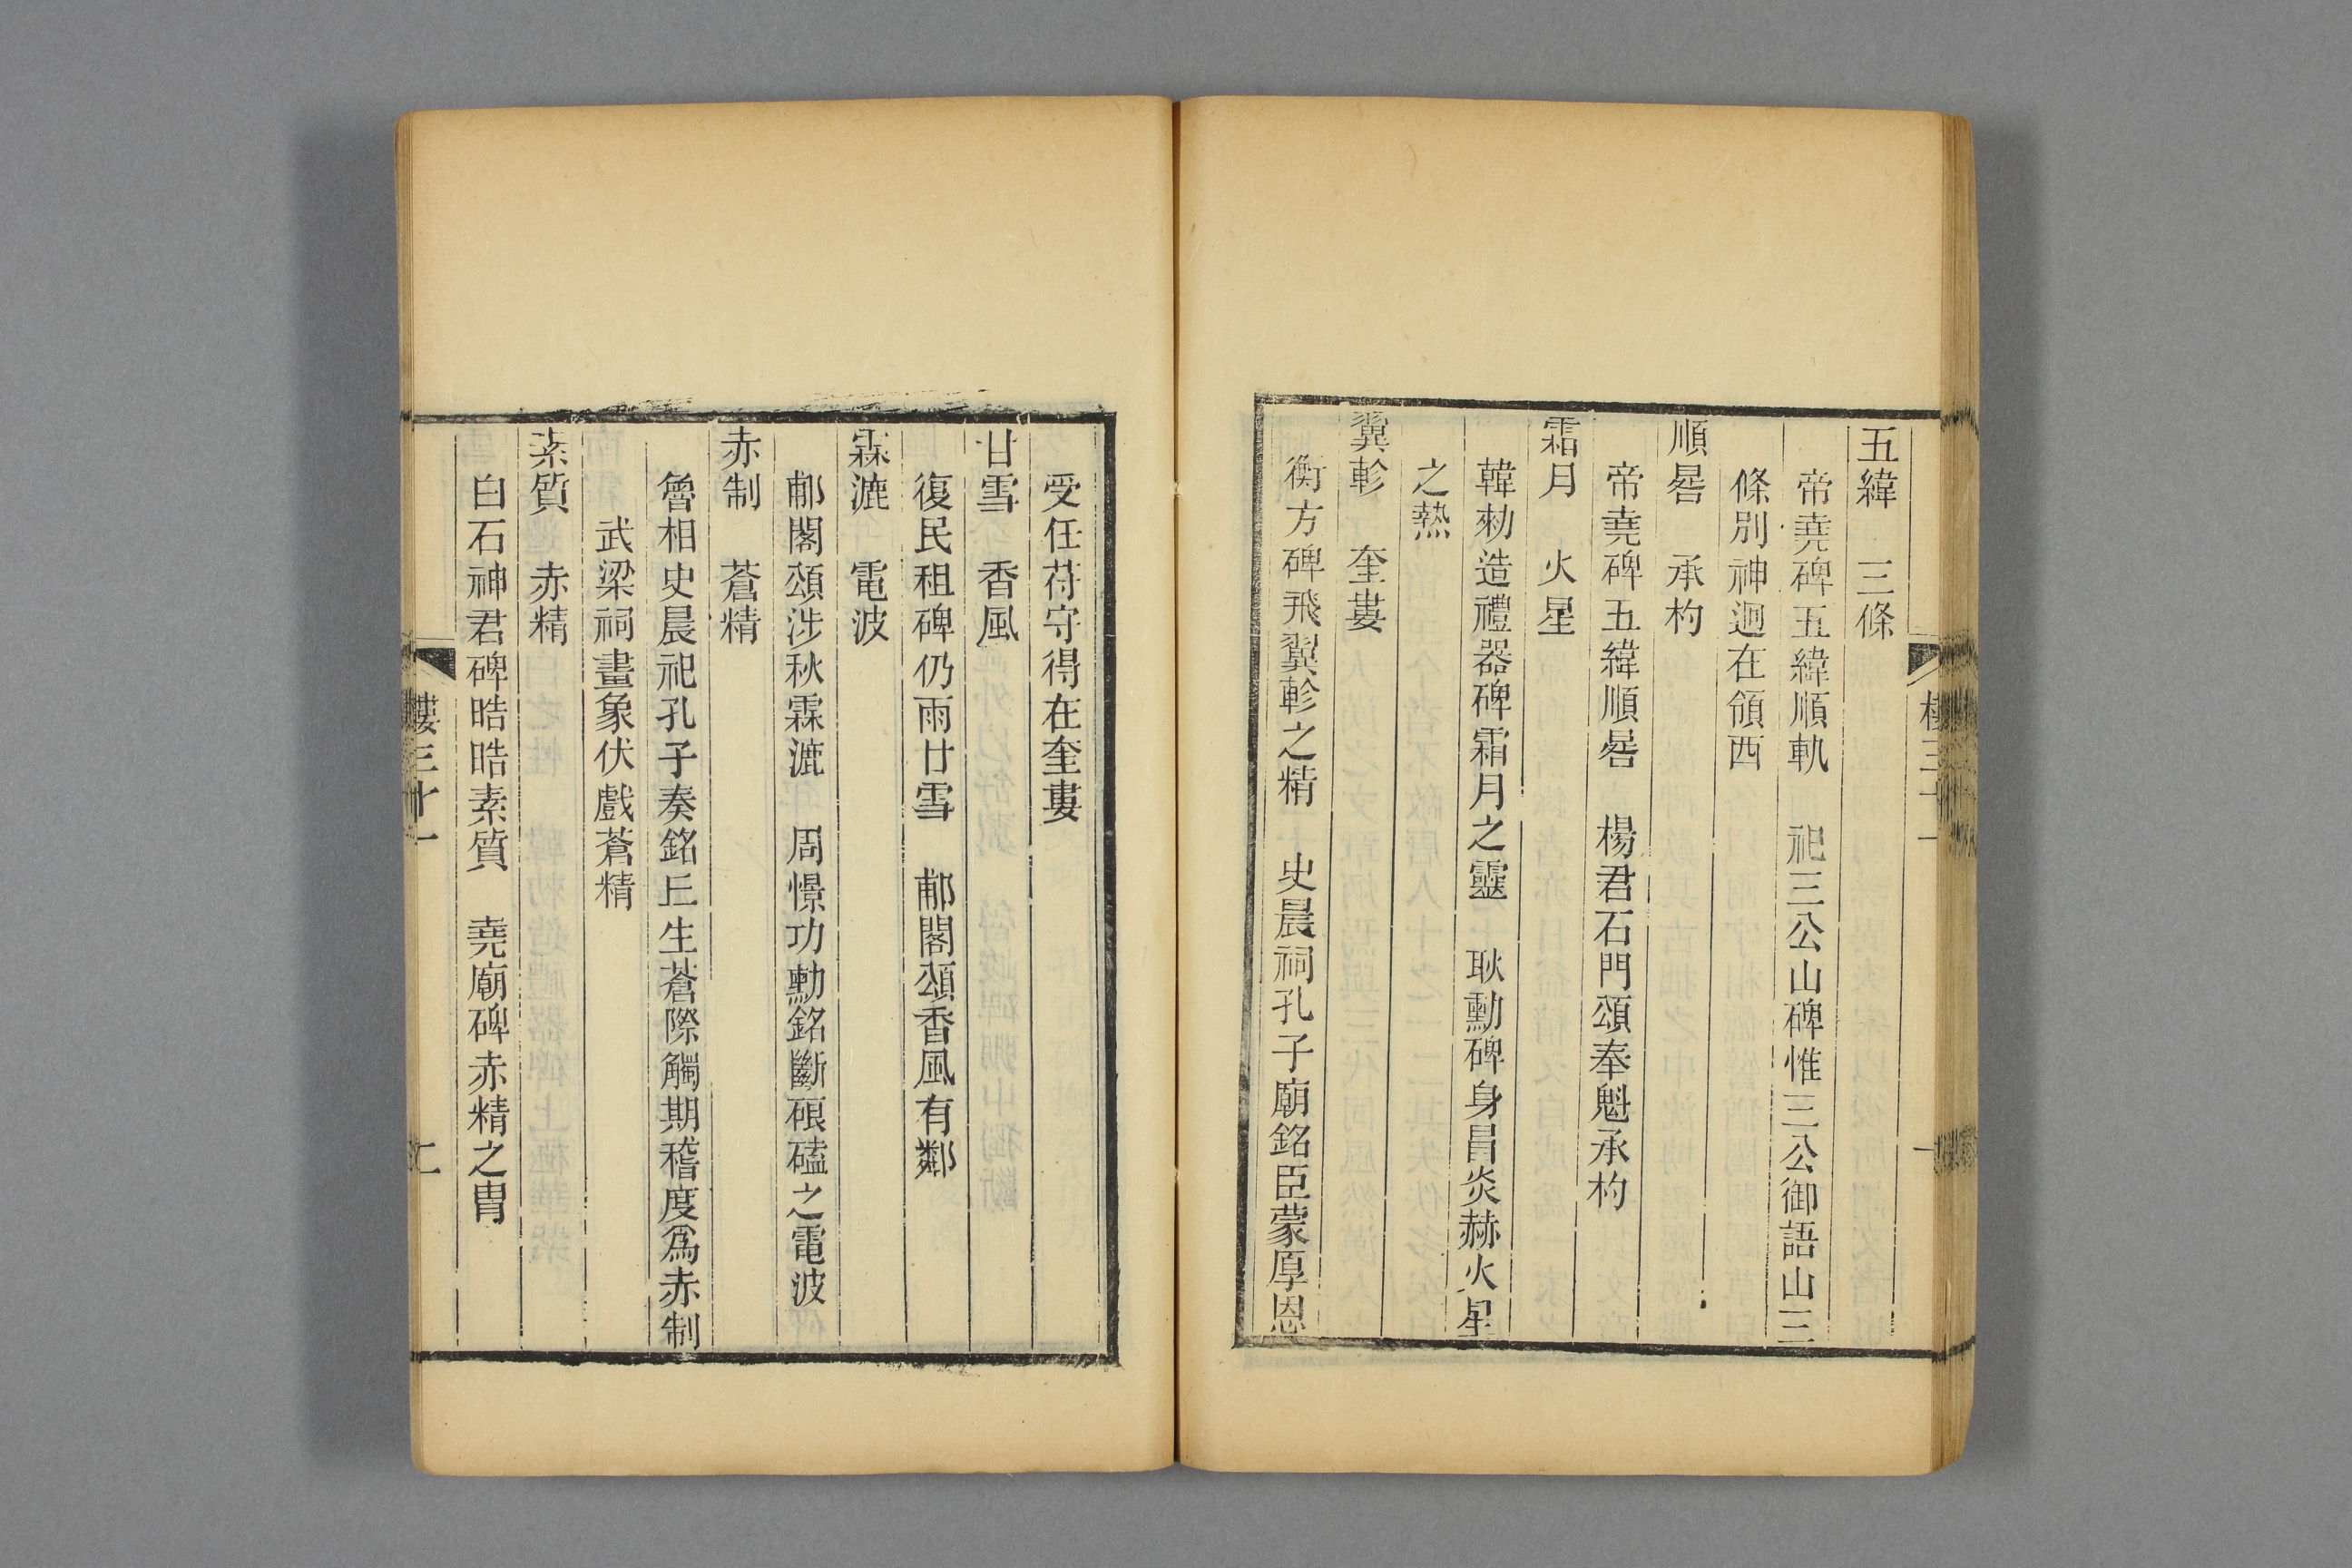 五緯　三條
帝堯碑五緯順軌　祀三公山碑惟三公御語山三
條別神迥在領西
順晷　承杓
帝堯碑五緯順晷　楊君石門頌奉魁承杓
霜月　火星
韓勑造禮器碑霜月之靈　耿勳碑身冒炎赫火星
之熱
翼軫　奎婁
衡方碑飛翼軫之精　史晨祠孔子廟銘臣蒙厚恩
受任苻守得在奎婁
甘雪　香風
復民租碑仍雨甘雪　郙閣頌香風有鄰
霖漉　電波
郙閣頌涉秋霖漉　周憬功勳銘斷硠磕之電波
赤制　蒼精
魯相史晨祀孔子奏銘丘生蒼際觸期稽度爲赤制
武梁祠畫象伏戲蒼精
素質　赤精
白石神君碑晧晧素質　堯廟碑赤精之胄